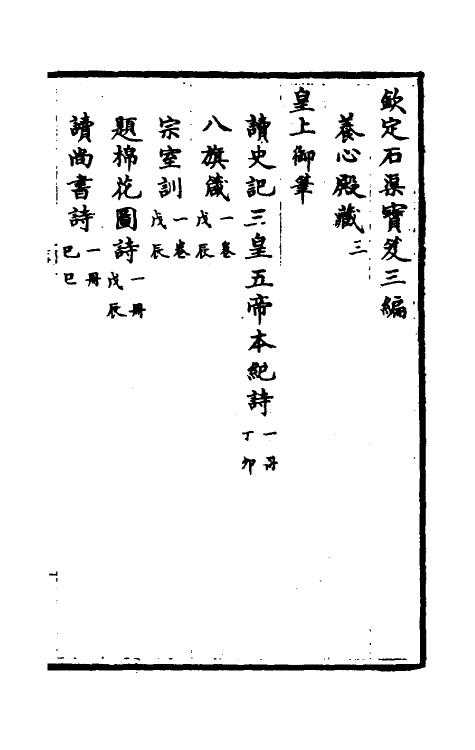 欽定石渠寶笈三編
養心殿藏三
皇上御筆
讀史記三皇五帝本紀詩一冊丁卯
八旗箴一卷戊辰
宗室訓一卷戊辰
題棉花圖詩一冊戊辰
讀尚書詩一冊己巳